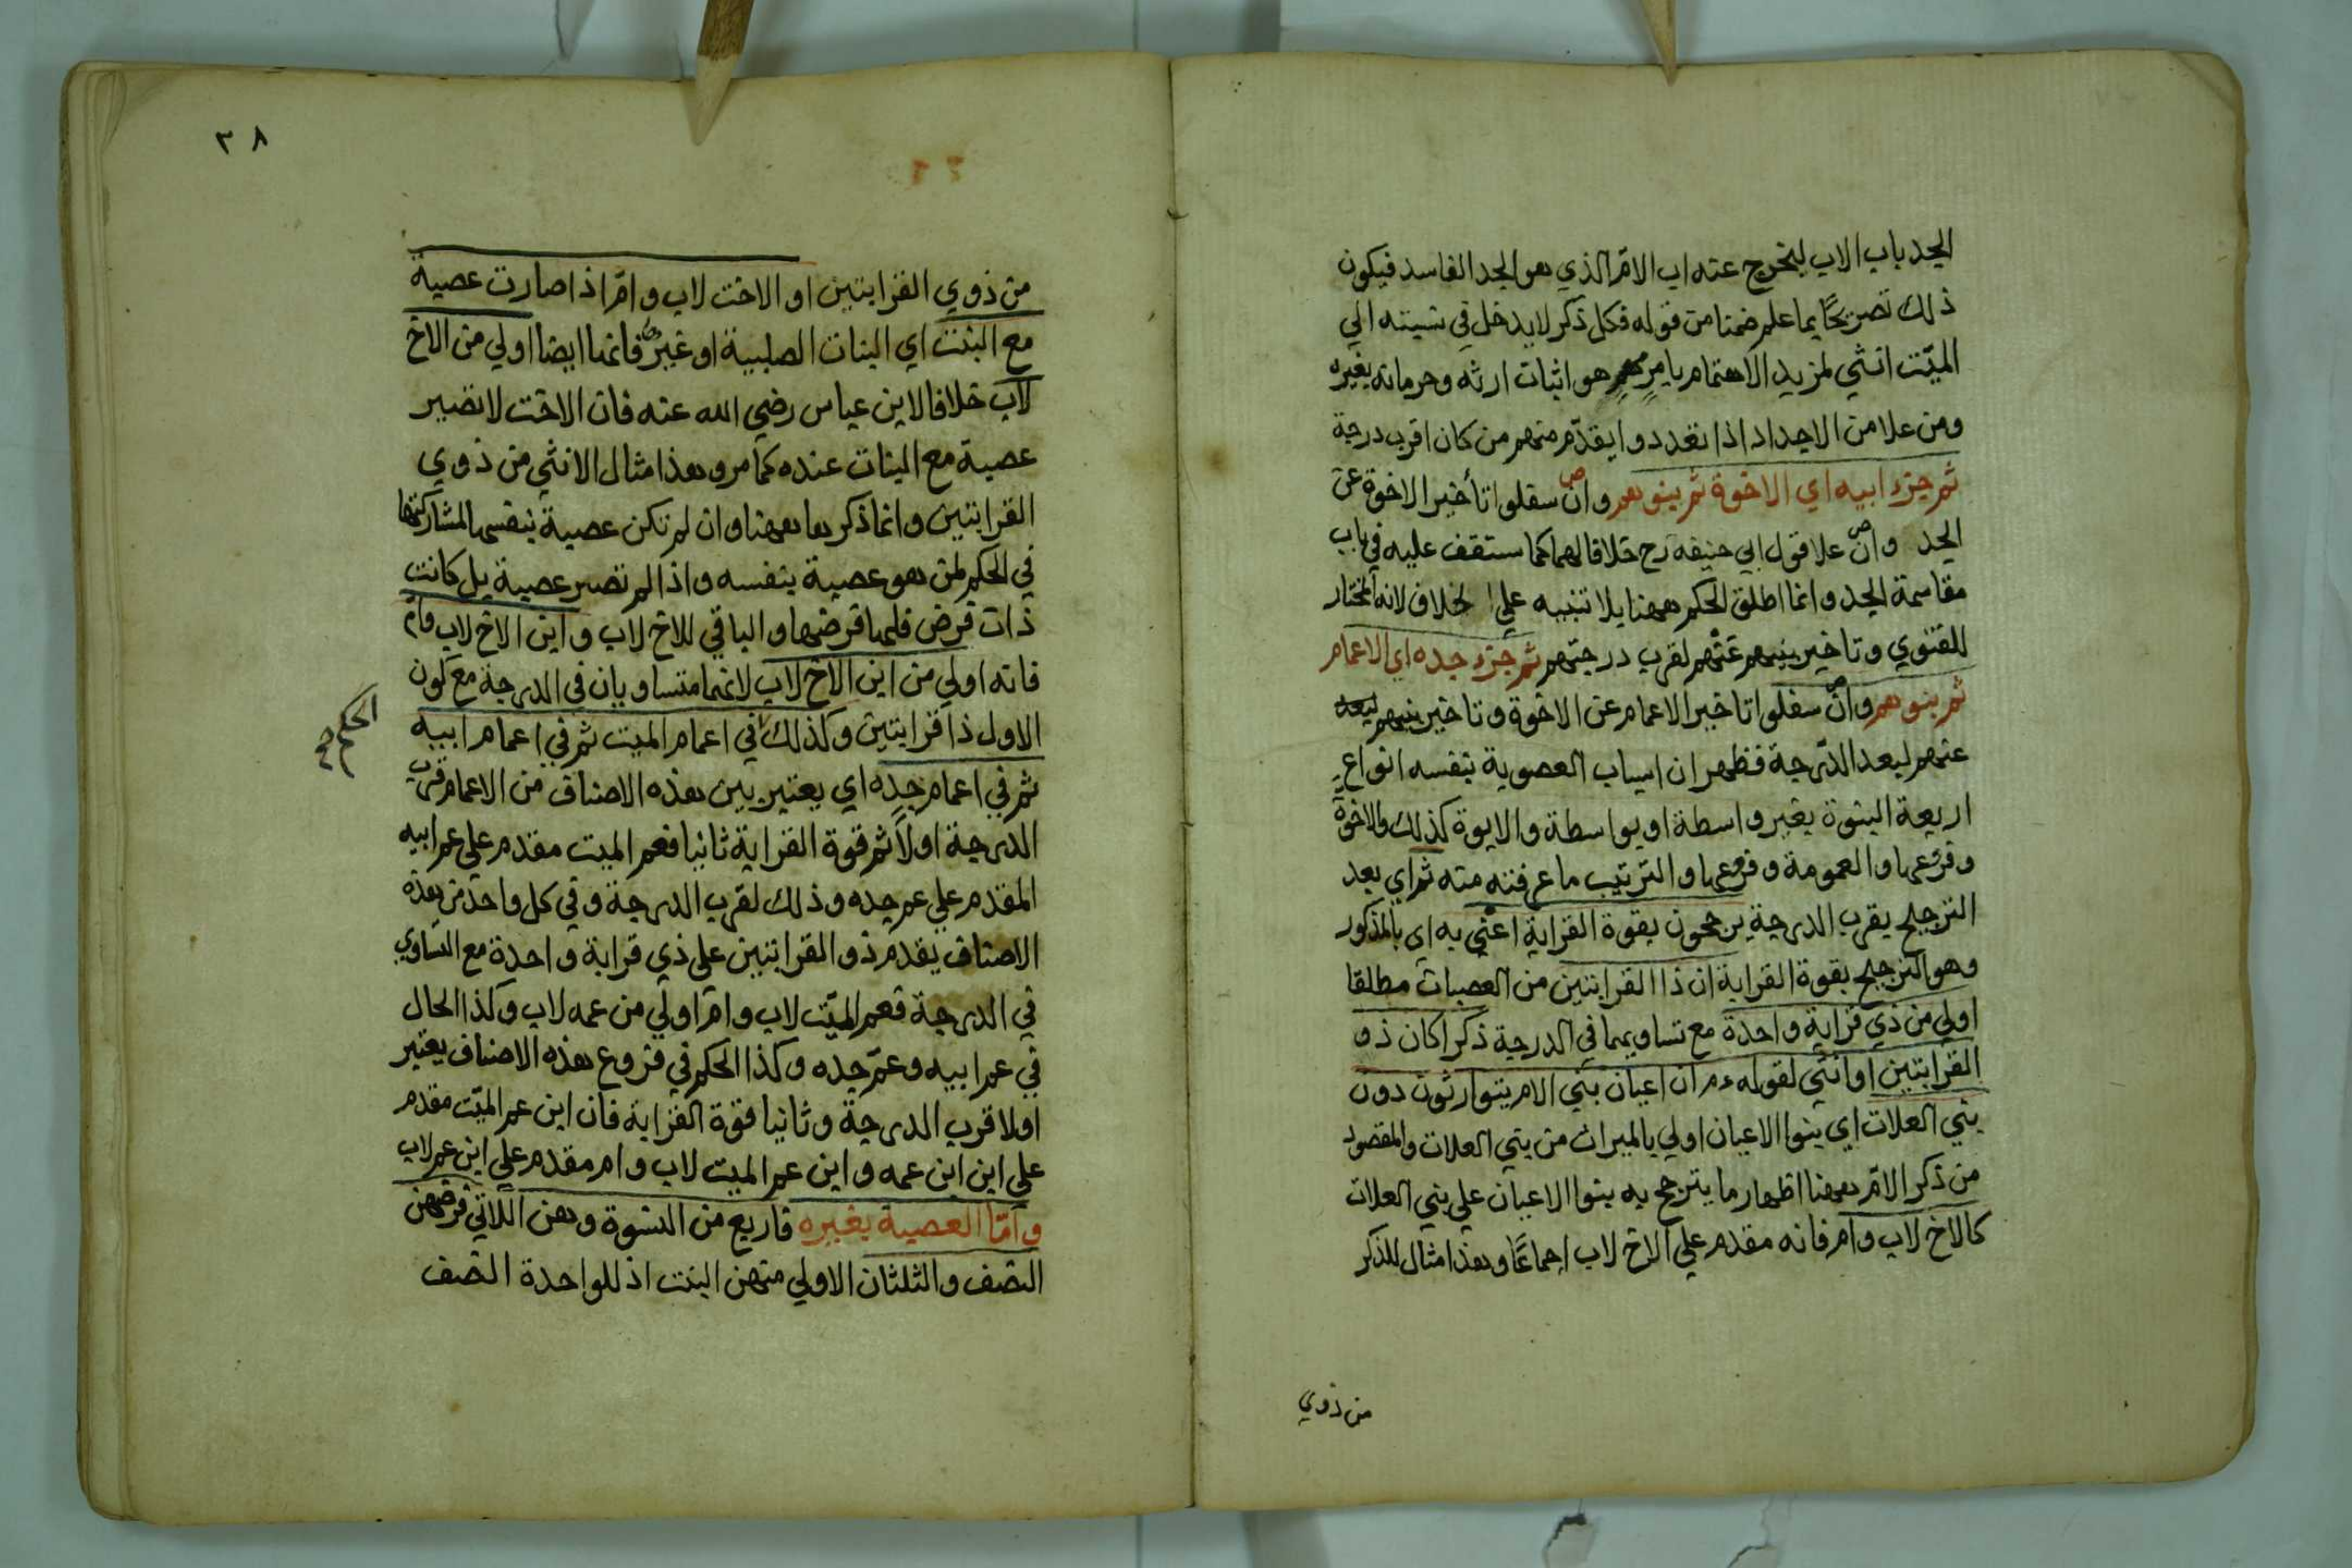 الجد باب الاب ليخرج عنه اب الامّ الذي هو الجد الفاسد فيكون
ذلك تصريحًا بما علم ضمنا من قوله فكل ذكر لا يدخل في نسبته الي
الميّت انثي لمزيد الاهتمام بامرٍ مهمٍ هو اثبات ارثه وحرمانه بغيره
ومن علا من الاجداد اذا تعددوا يقدّم منهم من كان اقرب درجة
ثم جزء ابيه اي الاخوة ثم بنوهم وان سفلوا تأخير الاخوة عن
الجد وان علا قول ابي حنيفه رح خلافا لهما كما ستقف عليه في باب
مقاسمة الجد وانما اطلق الحكم ههنا بلا تنبيه علي الخلاف لانه المختار
للفتوي وتاخير بنيهم عنهم لقرب درجتهم ثم جزء جده اي الاعمام
ثم بنوهم وان سفلوا تاخير الاعمام عن الاخوة وتاخير بنيهم لبعد
عنهم لبعد الدّرجة فظهر ان اسباب العصوبة بنفسه انواع
اربعة البنوة بغير واسطة او بواسطة والابوة كذلك والاخوة
وفروعها والعمومة وفروعها والترتيب ما عرفته منه ثم اي بعد
الترجيح بقرب الدرجة يرجحون بقوة القرابة اعني به اي بالمذكور
وهو الترجيح بقوة القرابة ان ذا القرابتين من العصبات مطلقا
اولي من ذي قرابة واحدة مع تساويهما في الدرجة ذكرا كان ذو
القرابتين او انثي لقوله ءم ان اعيان بني الام يتوارثون دون
بني العلات اي بنوا الاعيان اولي بالميراث من بني العلات والمقصود
من ذكر الامّ ههنا اظهار ما يترجح به بنوا الاعيان علي بني العلات
كالاخ لاب وام فانه مقدم علي الاخ لاب اجماعًا وهذا مثال للذكر
من ذوي
٣٨
من ذوي القرابتين او الاخت لاب وامّ اذا صارت عصبة
مع البنت اي البنات الصلبية او غيرها فانها ايضا اولي من الاخ
لاب خلافا لابن عباس رضي الله عنه فان الاخت لا تصير
عصبة مع البنات عنده كما مر وهذا مثال الانثي من ذوي
القرابتين وانما ذكرها ههنا وان لم تكن عصبة بنفسها لمشاركتها
في الحكم لمن هو عصبة بنفسه واذا لم تصر عصبة بل كانت
ذات فرض فلها فرضها والباقي للاخ لاب وابن الاخ لاب وام
فانه اولي من ابن الاخ لاب لانهما متساويان في الدرجة مع كون
الاول ذا قرابتين وكذلك في اعمام الميت ثم في اعمام ابيه
الحكم صح
ثم في اعمام جده اي يعتبر بين هذه الاصناف من الاعمام قرب
الدرجة اولًا ثم قوة القرابة ثانيا فعم الميت مقدم علي عم ابيه
المقدم علي عم جده وذلك لقرب الدرجة وفي كل واحد من هذه
الاصناف يقدم ذو القرابتين علي ذي قرابة واحدة مع التساوي
في الدرجة فعم الميّت لاب وامّ اولي من عمه لاب وكذا الحال
في عم ابيه وعمّ جده وكذا الحكم في فروع هذه الاصناف يعتبر
اولا قرب الدرجة وثانيا قوة القرابة فان ابن عم الميّت مقدم
علي ابن ابن عمه وابن عم الميت لاب وام مقدم علي ابن عم لاب
وامّا العصبة بغيره فاربع من النسوة وهن اللاتي فرضهن
النصف والثلثان الاولي منهن البنت اذ للواحدة النصف